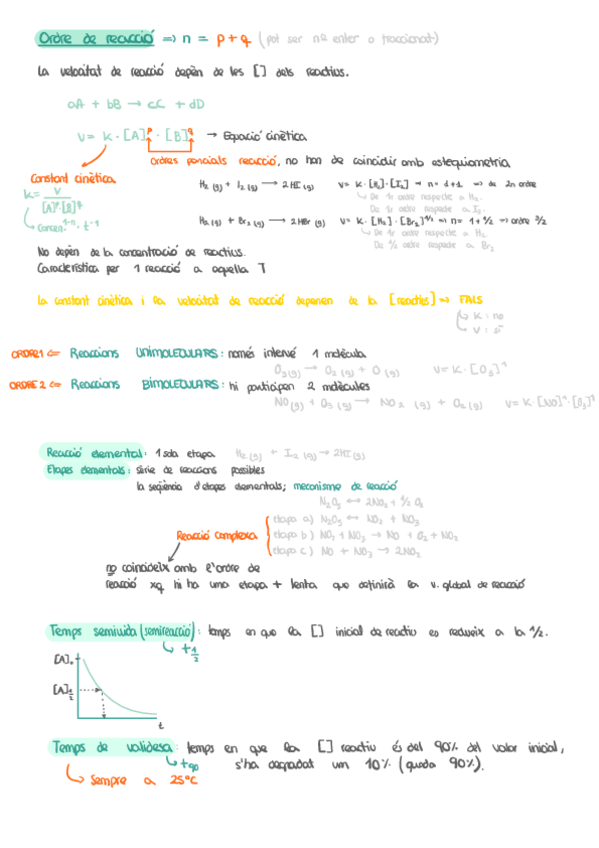 Ordre de reacció ⇒ n = p + q (pot ser nº enter o fraccionat)
La velocitat de reacció depèn de les [] dels reactius.
aA + bB → cC + dD
v = K · [A]^p · [B]^q → Equació cinètica
Ordres parcials reacció, no han de coincidir amb estequiometria
Constant cinètica
K = v / [A]^p [B]^q
↳ Concen.^1-n · t^-1
H₂ (g) + I₂ (g) → 2HI (g) v = K · [H₂] · [I₂] ⇒ n = 1+1 ⇒ de 2n ordre
↳ De 1r ordre respecte a H₂.
De 1r ordre respecte a I₂.
H₂ (g) + Br₂ (g) → 2HBr (g) v = K · [H₂] · [Br₂]^1/2 ⇒ n = 1 + 1/2 ⇒ ordre 3/2
↳ De 1r ordre respecte a H₂.
De 1/2 ordre respecte a Br₂
No depèn de la concentració de reactius.
Característica per 1 reacció a aquella T
La constant cinètica i la velocitat de reacció depenen de la [reactius] ⇒ FALS
↳ K : no
↳ V : sí
ORDRE 1 ⇐ Reaccions UNIMOLECULARS : només intervé 1 molècula
O₃ (g) → O₂ (g) + O (g) v = K · [O₃]^1
ORDRE 2 ⇐ Reaccions BIMOLECULARS : hi participen 2 molècules
NO (g) + O₃ (g) → NO₂ (g) + O₂ (g) v = K [NO]^1 · [O₃]^1
Reacció elemental : 1 sola etapa H₂ (g) + I₂ (g) → 2HI (g)
Etapes elementals : sèrie de reaccions possibles
la seqüència d'etapes elementals; mecanisme de reacció
N₂O₅ ↔ 2NO₂ + 1/2 O₂
etapa a) N₂O₅ ↔ NO₂ + NO₃
Reacció complexa etapa b) NO₂ + NO₃ → NO + O₂ + NO₂
etapa c) NO + NO₃ → 2NO₂
no coincideix amb l'ordre de
reacció xq hi ha una etapa + lenta que definirà la v. global de reacció
Temps semivida (semireacció) : temps en que la [] inicial de reactiu es redueix a la 1/2.
↳ t 1/2
[A]₀
[A] 1/2
t
Temps de validesa : temps en que la [] reactiu és del 90% del valor inicial,
↳ t₉₀ s'ha degradat un 10% (queda 90%).
↳ Sempre a 25ºC